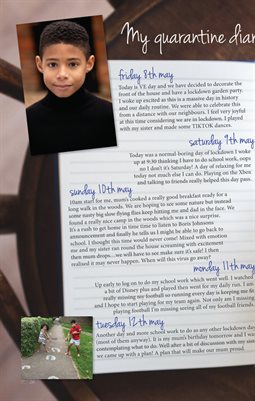 My quarantine diar
friday 8th may
Today is VE day and we have decorate the
front of the house and have a lockdown garden party.
I woke up excited as this is a massive day in history
and our daily routine. We were able to celebrate this
from a distance with our neighbours. I feel very joyful
at this time considering we are in lockdown. I played
with my sister and made some TIKTOK dances.
saturday 9th may
Today was a normal-boring day of lockdown I woke
up at 9:30 thinking I have to do school work, oops
no I don't it's Saturday! A day of relaxing for me
today not much else I can do. Playing on the Xbox
and talking to friends really helped this day pass.
sunday 10th may
10am start for me, mum's cooked a really good breakfast ready for a
long walk in the woods. We are hoping to see some nature but instead
some nasty big slow flying flies keep hitting me and dad in the face. We
found a really nice camp in the woods which was a nice surprise.
It's a rush to get home in time time to listen to Boris Johnsons
announcement and finally he tells us I might be able to go back to
school. I thought this time would never come! Mixed with emotion
me and my sister ran round the house screaming with excitement
then mum drops....we will have to see make sure it's safe! I then
realised it may never happen. When will this virus go away?
monday 11th may
Up early to log on to do my school work which went well. I watched
a bit of Disney plus and played then went for my daily run. I am
really missing my football so running every day is keeping me fit
and I hope to start playing for my team again. Not only am I missing
playing football I'm missing seeing all of my football friends.
tuesday 12th may
Another day and more school work to do as any other lockdown day
(most of them anyway). It is my mum's birthday tomorrow and I was
contemplating what to do. Well after a bit of discussion with my sister
we came up with a plan! A plan that will make our mum proud.